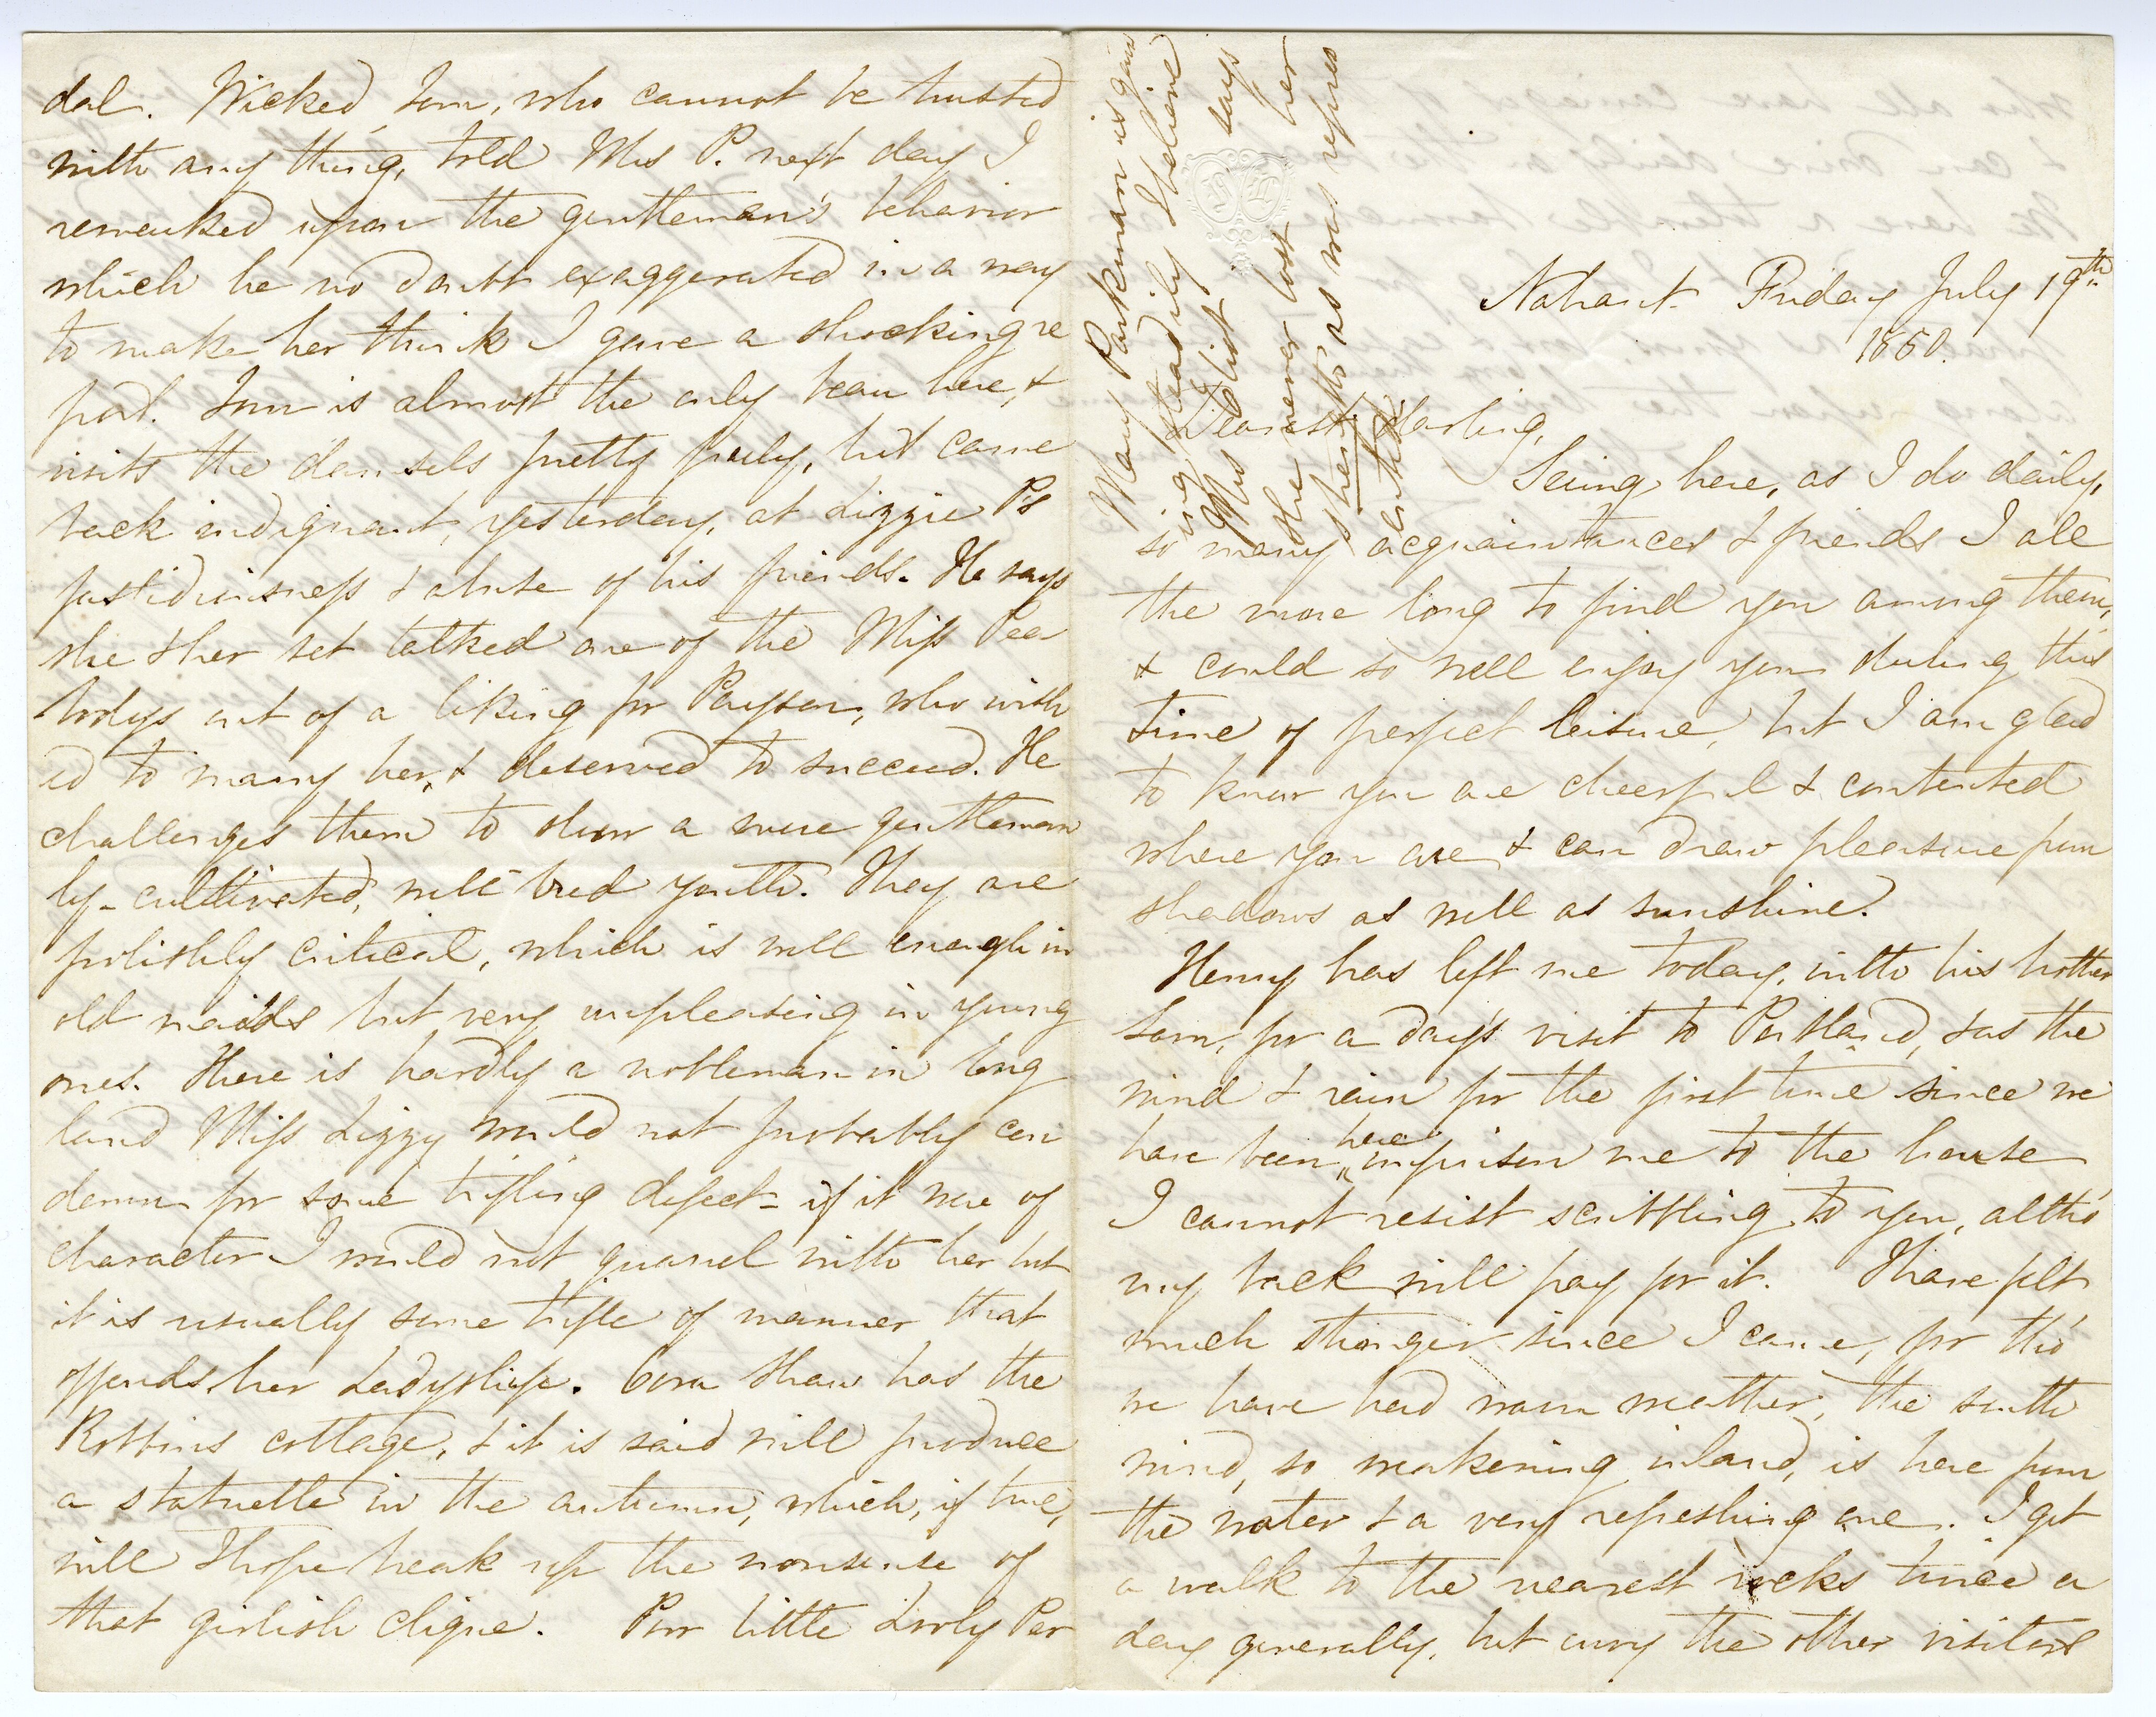 Nahant. Friday July 19th.
1850.
Dearest darling,
Seeing here, as I do daily,
so many acquaintances & friends I all
the more long to find you among them,
& could so well enjoy you during this
time of perfect leisure, but I am glad
to know you are cheerful & contented
where you are, & can draw pleasure from
shadows as well as sunshine.
Henry has left me today, with his brother
Sam, for a day's visit to Portland, & as the
wind & rain for the first time since we
have been here imprison me to the house
I cannot resist scribbling to you, altho'
my back will pay for it. I have felt
much stronger since I came, for tho'
we have had warm weather, the south
wind, so weakening inland, is here from
the water & a very refreshing one. I get
a walk to the nearest rocks twice a
day generally, but envy the other visitors
Mary Parkman is gain
ing steadily I believe
Mrs Eliot says
she never lost her
strength as was repres
ented
dal. Wicked Tom, who cannot be trusted
with any thing, told Mrs P. next day I
remarked upon the gentleman's behavior
which he no doubt exaggerated in a way
to make her think I gave a shocking re
port. Tom is almost the only beau here, &
visits the damsels pretty freely, but came
back indignant, yesterday, at Lizzie P's
fastidiousness & abuse of his friends. He says
she & her set talked one of the Miss Pea
bodys out of a liking for Payson, who wish
ed to marry her, & deserved to succeed. He
challenges them to show a more gentleman
ly-cultivated, well bred youth. They are
foolishly critical, which is well enough in
old maids but very unpleasing in young
ones. There is hardly a nobleman in Eng
land Miss Lizzy would not probably con
demn for some trifling defect - if it were of
character I would not quarrel with her but
it is usually some trifle of manner that
offends her Ladyship. Cora Shaw has the
Robbins cottage, & it is said will produce
a statuette in the autumn, which, if true,
will I hope break up the nonsense of
that girlish clique. Poor little Per